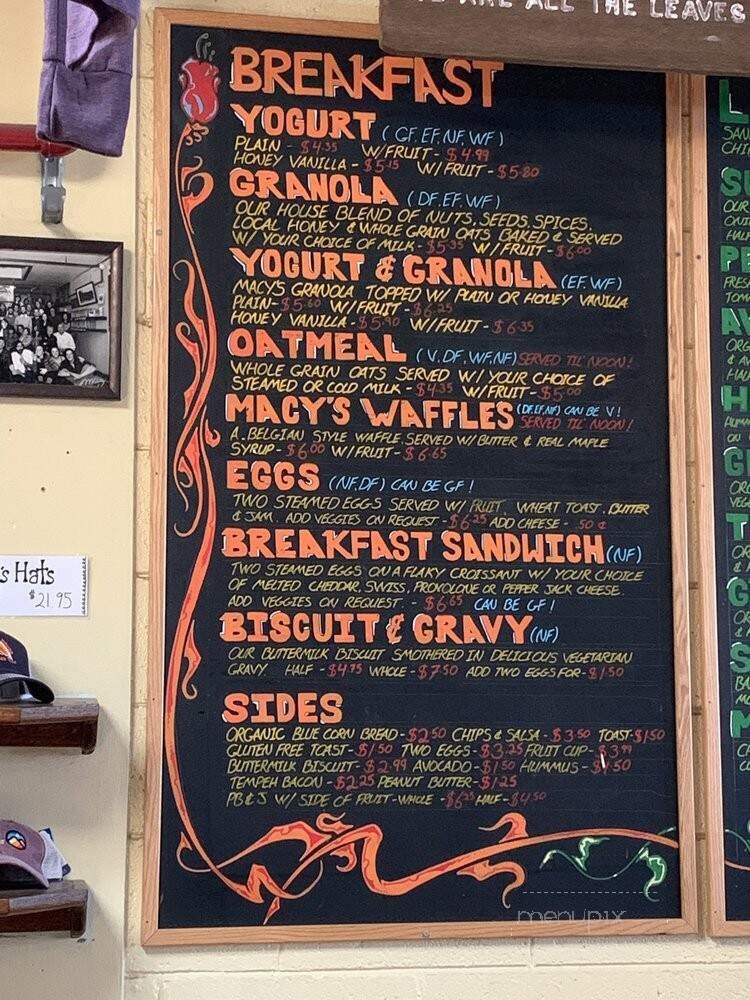 ARE ALL THE LEAVES
BREAKFAST
YOGURT (GF, EF, NF, WF)
PLAIN - $4.35 W/FRUIT - $4.99
HONEY VANILLA - $5.15 W/FRUIT - $5.80
GRANOLA (DF, EF, WF)
OUR HOUSE BLEND OF NUTS, SEEDS, SPICES,
LOCAL HONEY & WHOLE GRAIN OATS BAKED & SERVED
W/ YOUR CHOICE OF MILK - $5.35 W/FRUIT - $6.00
YOGURT & GRANOLA (EF, WF)
MACY'S GRANOLA TOPPED W/ PLAIN OR HONEY VANILLA
PLAIN - $5.60 W/FRUIT - $6.25
HONEY VANILLA - $5.90 W/FRUIT - $6.35
OATMEAL (V, DF, WF, NF) SERVED TIL' NOON!
WHOLE GRAIN OATS SERVED W/ YOUR CHOICE OF
STEAMED OR COLD MILK - $4.35 W/FRUIT - $5.00
MACY'S WAFFLES (DF, EF, NF) CAN BE V!
SERVED TIL' NOON!
A BELGIAN STYLE WAFFLE SERVED W/ BUTTER & REAL MAPLE
SYRUP - $6.00 W/FRUIT - $6.65
EGGS (NF, DF) CAN BE GF!
TWO STEAMED EGGS SERVED W/ FRUIT, WHEAT TOAST, BUTTER
& JAM. ADD VEGGIES ON REQUEST - $6.25 ADD CHEESE - .50¢
BREAKFAST SANDWICH (NF)
TWO STEAMED EGGS ON A FLAKY CROISSANT W/ YOUR CHOICE
OF MELTED CHEDDAR, SWISS, PROVOLONE OR PEPPER JACK CHEESE.
ADD VEGGIES ON REQUEST. - $6.65 CAN BE GF!
BISCUIT & GRAVY (NF)
OUR BUTTERMILK BISCUIT SMOTHERED IN DELICIOUS VEGETARIAN
GRAVY. HALF - $4.75 WHOLE - $7.50 ADD TWO EGGS FOR - $1.50
SIDES
ORGANIC BLUE CORN BREAD - $2.50 CHIPS & SALSA - $3.50 TOAST - $1.50
GLUTEN FREE TOAST - $1.50 TWO EGGS - $3.25 FRUIT CUP - $3.99
BUTTERMILK BISCUIT - $2.99 AVOCADO - $1.50 HUMMUS - $1.50
TEMPEH BACON - $2.25 PEANUT BUTTER - $1.25
PB & J W/ SIDE OF FRUIT - WHOLE - $6.25 HALF - $4.50
's Hats
$21.95
menupix